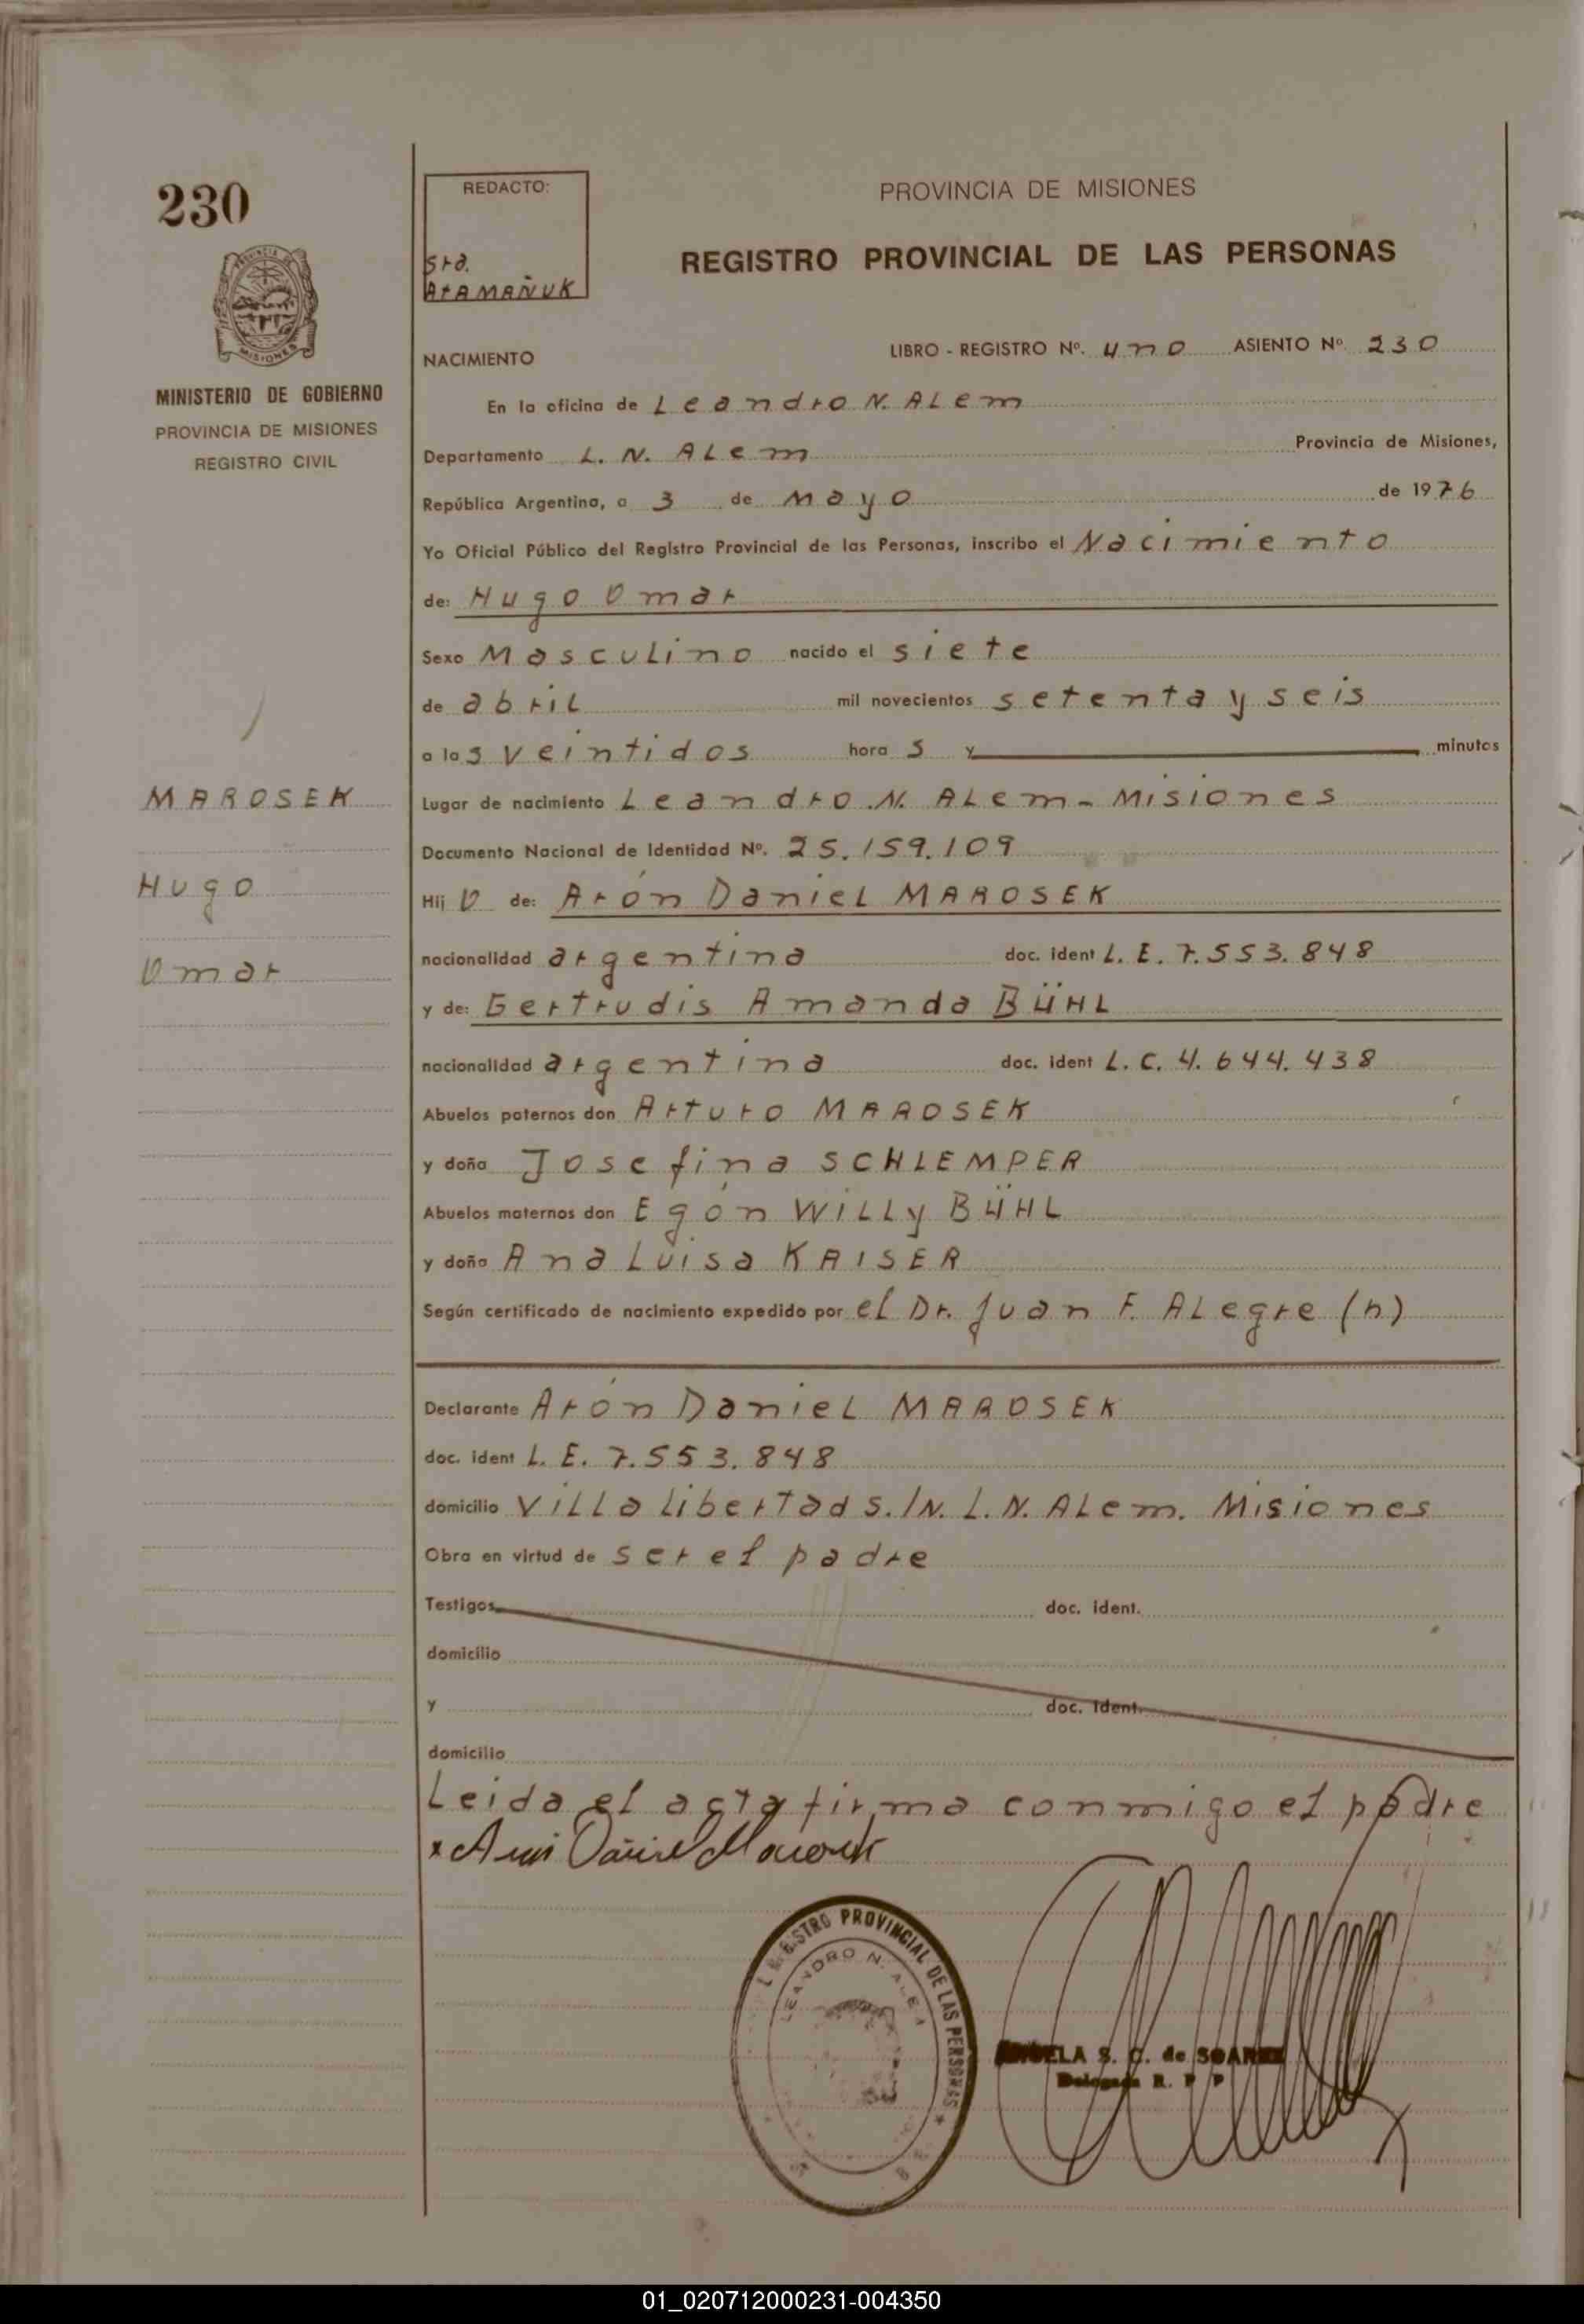 230
MINISTERIO DE GOBIERNO
PROVINCIA DE MISIONES
REGISTRO CIVIL
MAROSEK
Hugo
Omar
REDACTO:
Srta.
ATAMAÑUK
PROVINCIA DE MISIONES
REGISTRO PROVINCIAL DE LAS PERSONAS
NACIMIENTO LIBRO - REGISTRO Nº. uno ASIENTO Nº. 230
En la oficina de Leandro N. ALem
Departamento L. N. ALem Provincia de Misiones,
República Argentina, a 3 de Mayo de 1976
Yo Oficial Público del Registro Provincial de las Personas, inscribo el Nacimiento
de: Hugo Omar
Sexo Masculino nacido el siete
de abril mil novecientos setenta y seis
a las veintidos hora s y minutos
Lugar de nacimiento Leandro N. ALem - Misiones
Documento Nacional de Identidad Nº. 25.159.109
Hij O de: Arón Daniel MAROSEK
nacionalidad argentina doc. ident L. E. 7.553.848
y de: Gertrudis Amanda BÜHL
nacionalidad argentina doc. ident L. C. 4.644.438
Abuelos paternos don Arturo MAROSEK
y doña Josefina SCHLEMPER
Abuelos maternos don Egón Willy BÜHL
y doña Ana Luisa KAISER
Según certificado de nacimiento expedido por el Dr. Juan F. ALegre (h)
Declarante Arón Daniel MAROSEK
doc. ident L. E. 7.553.848
domicilio Villa Libertad S./N. L. N. ALem. Misiones
Obra en virtud de ser el padre
Testigos doc. ident.
domicilio
y doc. ident.
domicilio
Leida el acta firma conmigo el padre
REGISTRO PROVINCIAL DE LAS PERSONAS
LEANDRO N. ALEM
S. C. de SOAREZ
Delegada R. P. P
01_020712000231-004350